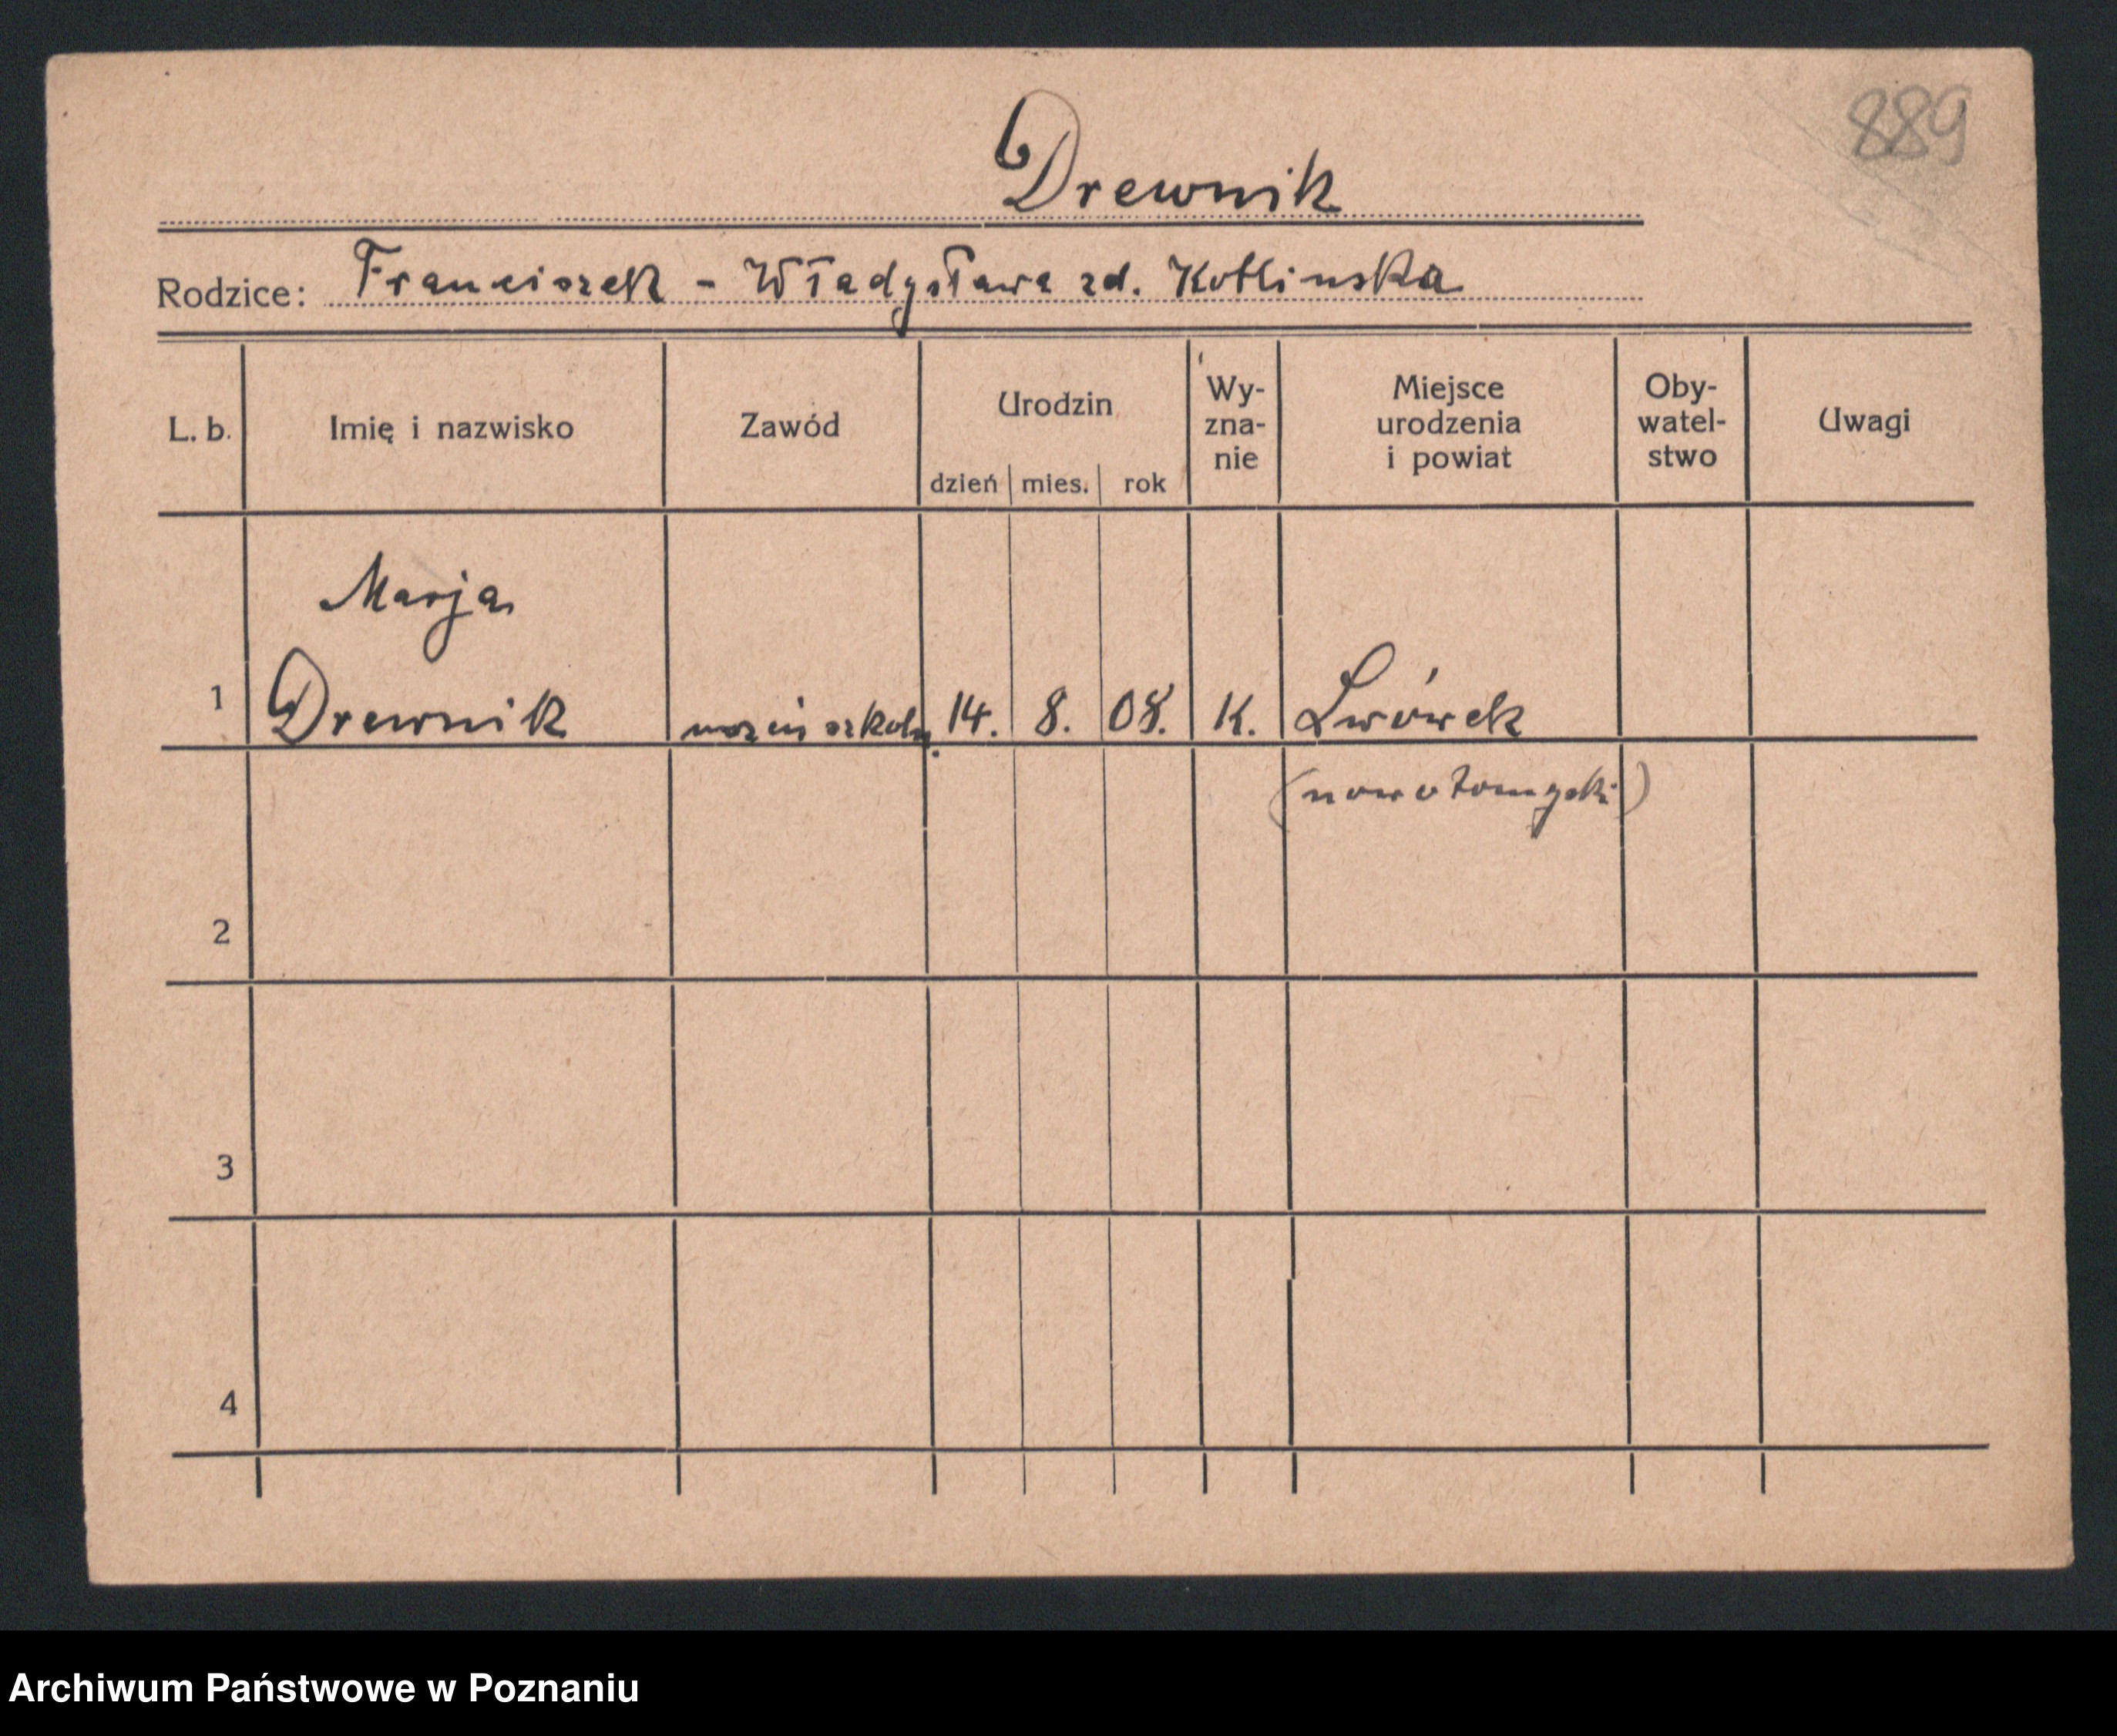 889
Drewnik
Rodzice: Franciszek - Władysława zd. Kotlinska
L. b.
Imię i nazwisko
Zawód
Urodzin
dzień mies. rok
Wy-
zna-
nie
Miejsce
urodzenia
i powiat
Oby-
watel-
stwo
Uwagi
Marja
1 Drewnik 14. 8. 08. K. Lwówek
(nowotomyski)
2
3
4
Archiwum Państwowe w Poznaniu